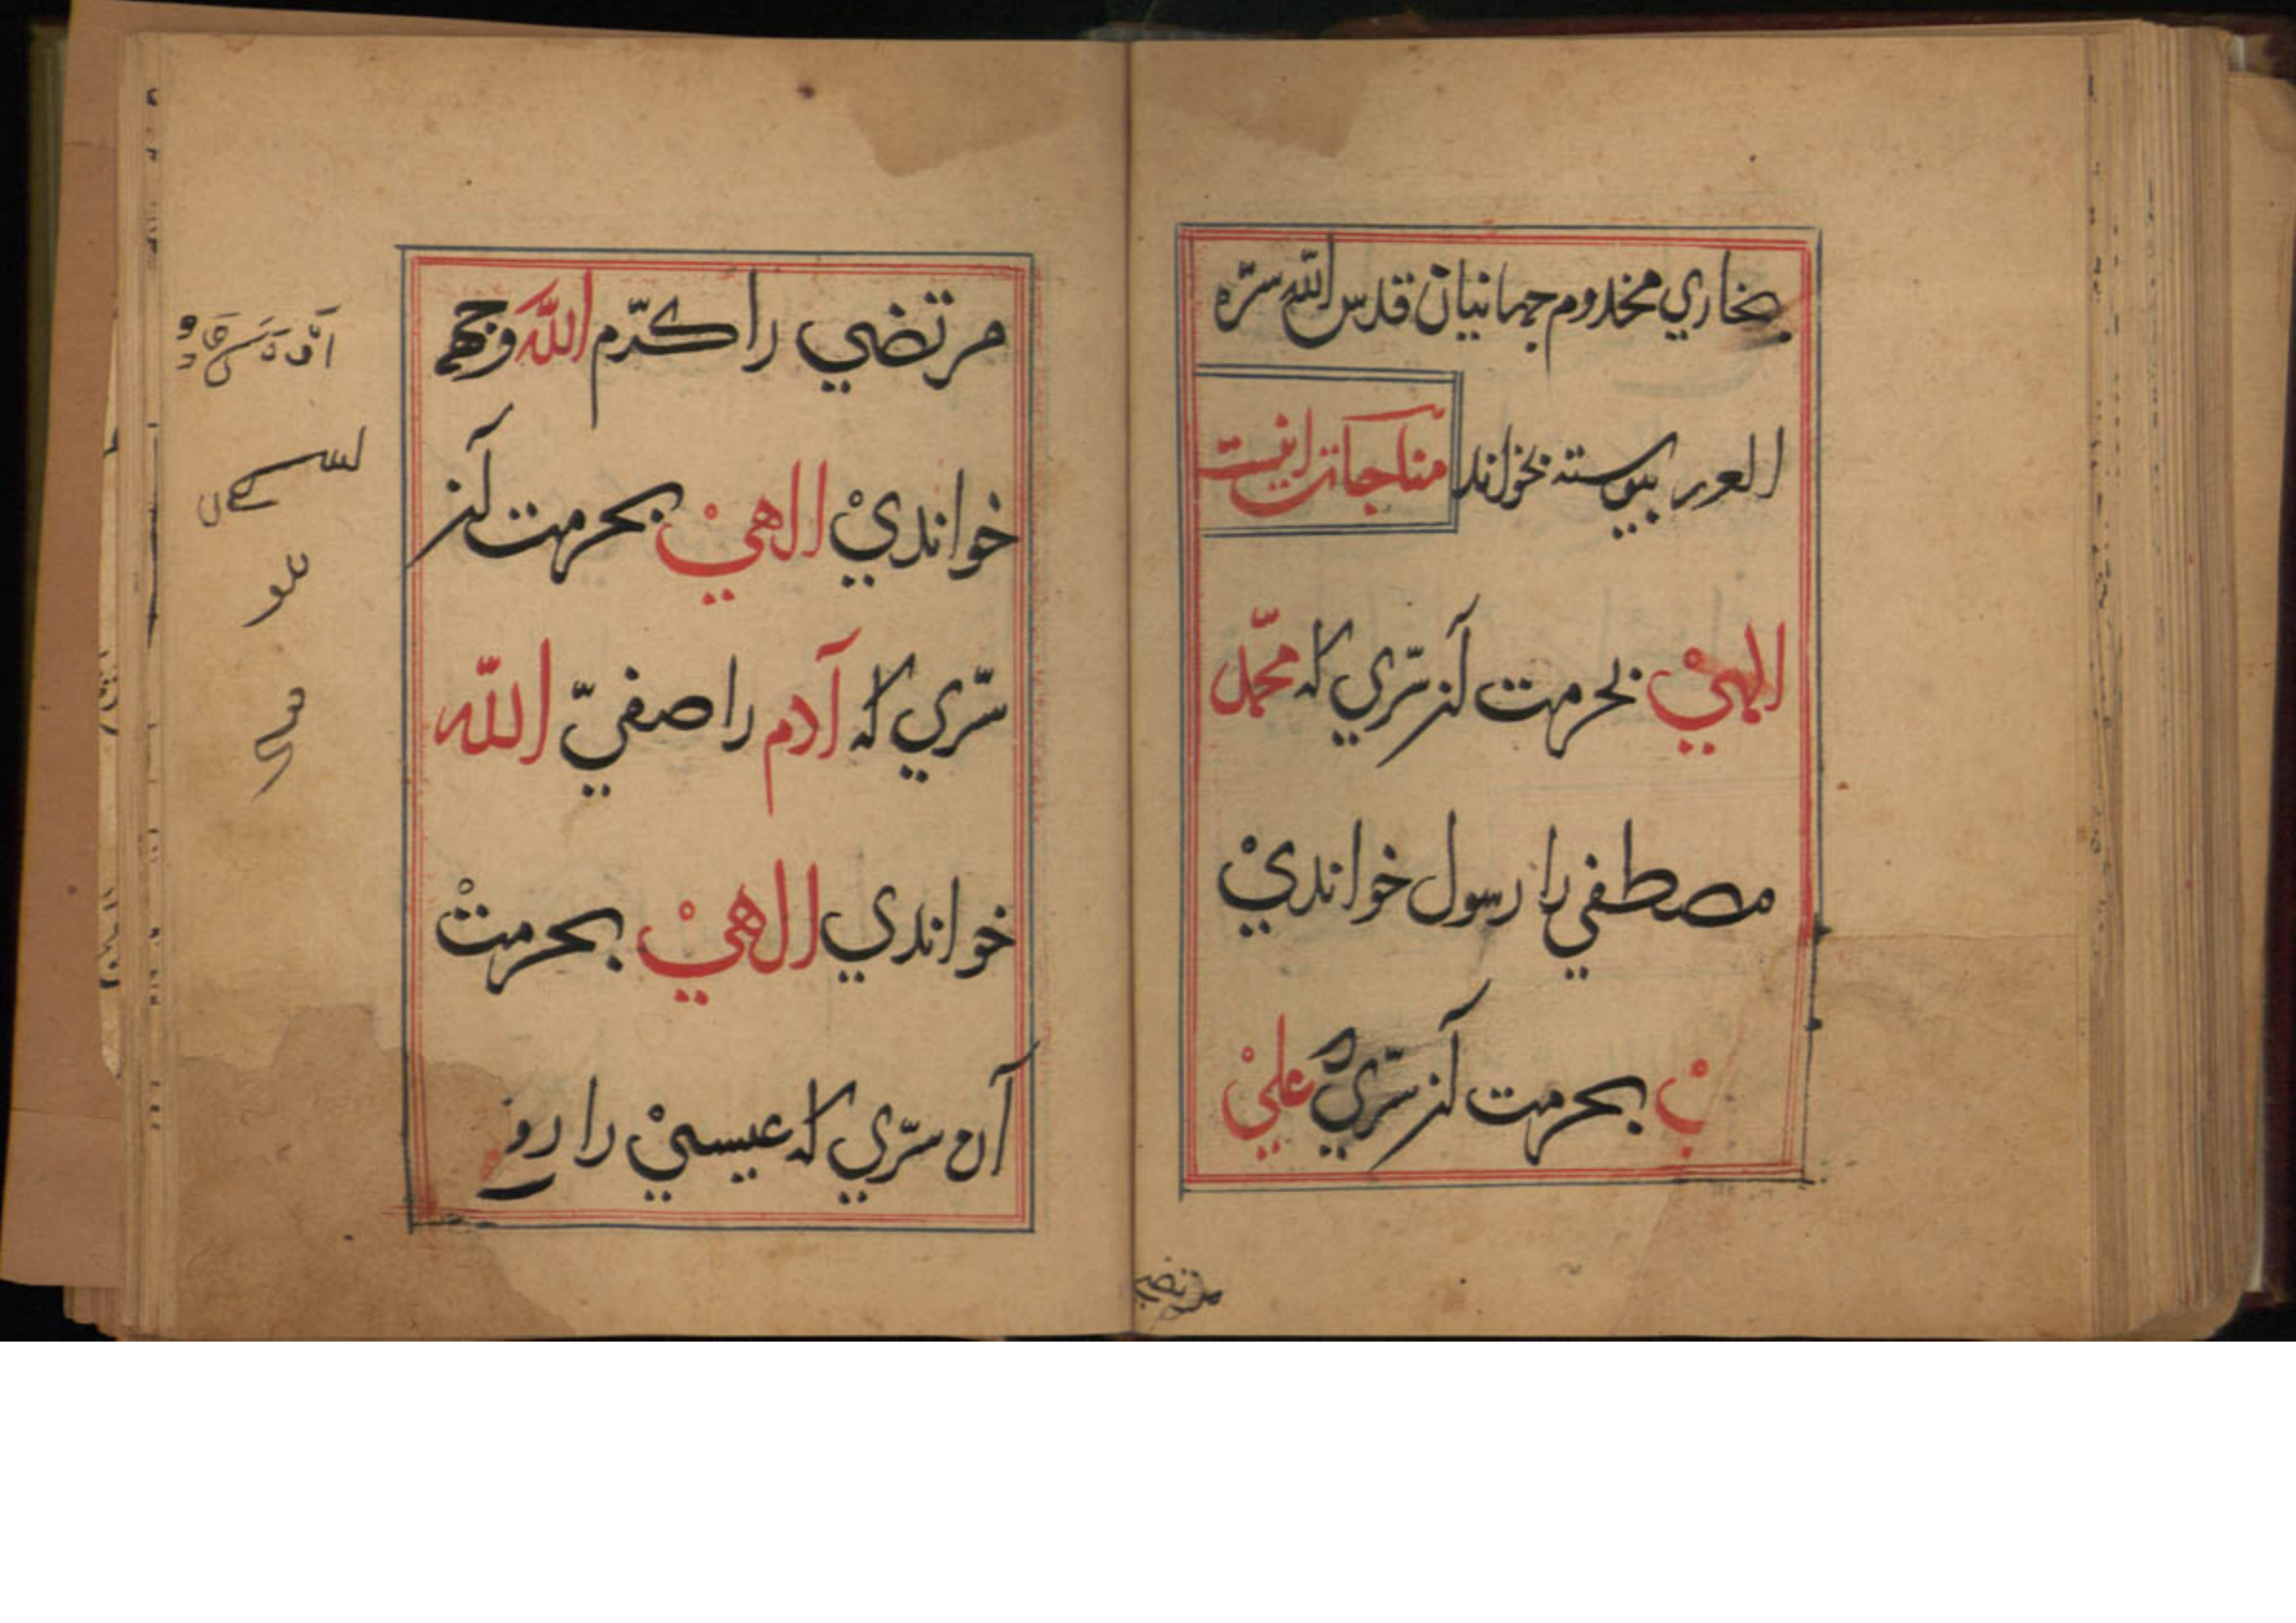 بخاري مخدوم جهانيان قدس الله سرّه
العزيز پيوسته بخواند مناجات اينست
الهيْ بحرمت آنز سرّي که محمّد
مصطفي را رسول خوانديْ
بحرمت آنز سرّي که عليْ
مرتضي
مرتضي را کرّم الله وجهه
خوانديْ الهيْ بحرمت آنز
سرّي که آدم را صفيّ الله
خواندي الهيْ بحرمتْ
آن سرّي که عيسيْ را رو